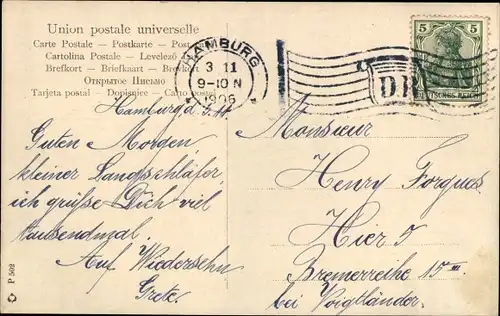 Union postale universelle
Carte Postale — Postkarte — Post
Cartolina Postale — Levelező
Brefkort — Briefkaart — Brevkort
Открытое Письмо
Tarjeta postal — Dopisnice — Carto postal
HAMBURG
3 11
9-10 N
1906
5 5
DR
DEUTSCHES REICH
Hamburg d. 3.11
Guten Morgen,
kleiner Langschläfer,
ich grüße Dich viel
tausendmal.
Auf Wiedersehn
Grete.
Monsieur
Henry Forgues
Hier 5
Bremerreihe 15 III
bei Voigtländer.
P 502